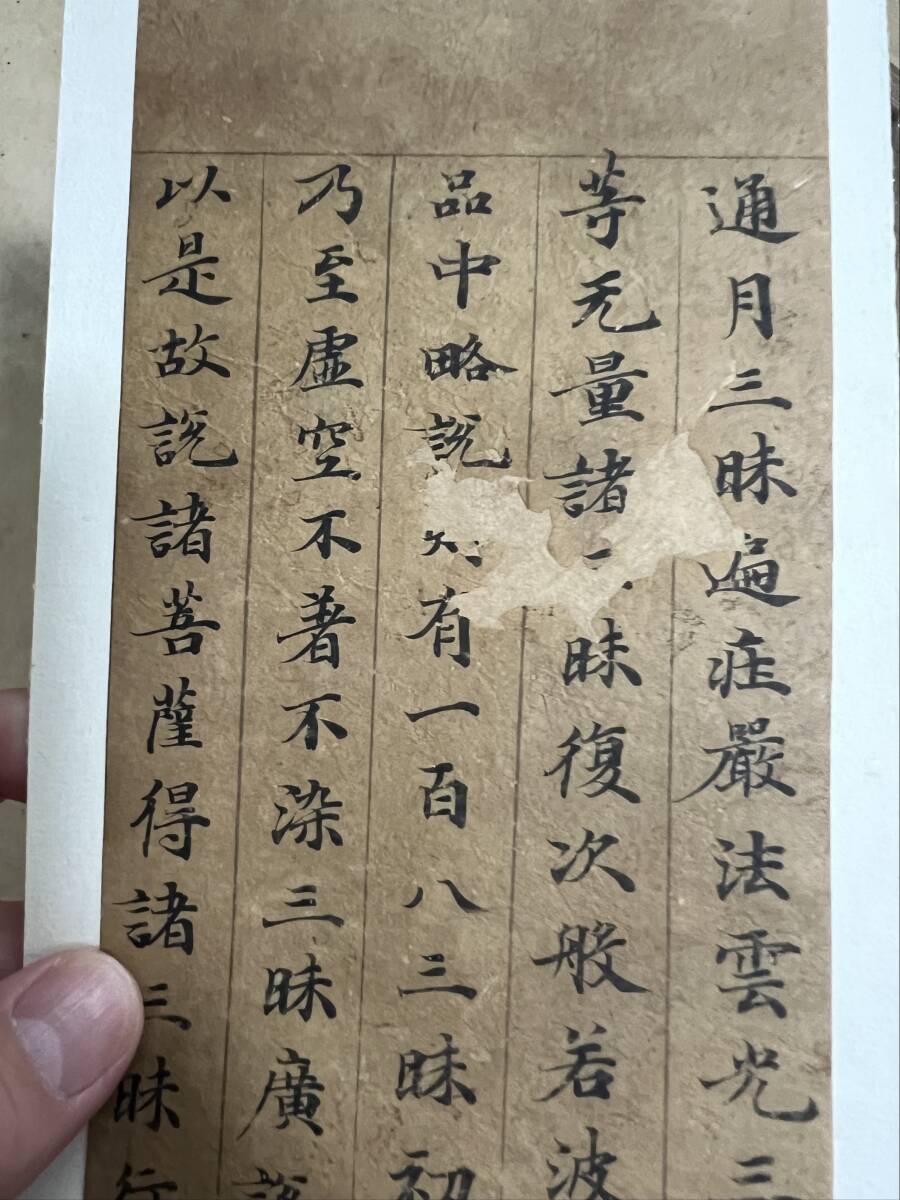 通月三昧遍疰嚴法雲光三
等无量諸三昧復次般若波
品中略說則有一百八三昧初
乃至虛空不著不染三昧廣說
以是故說諸菩薩得諸三昧行